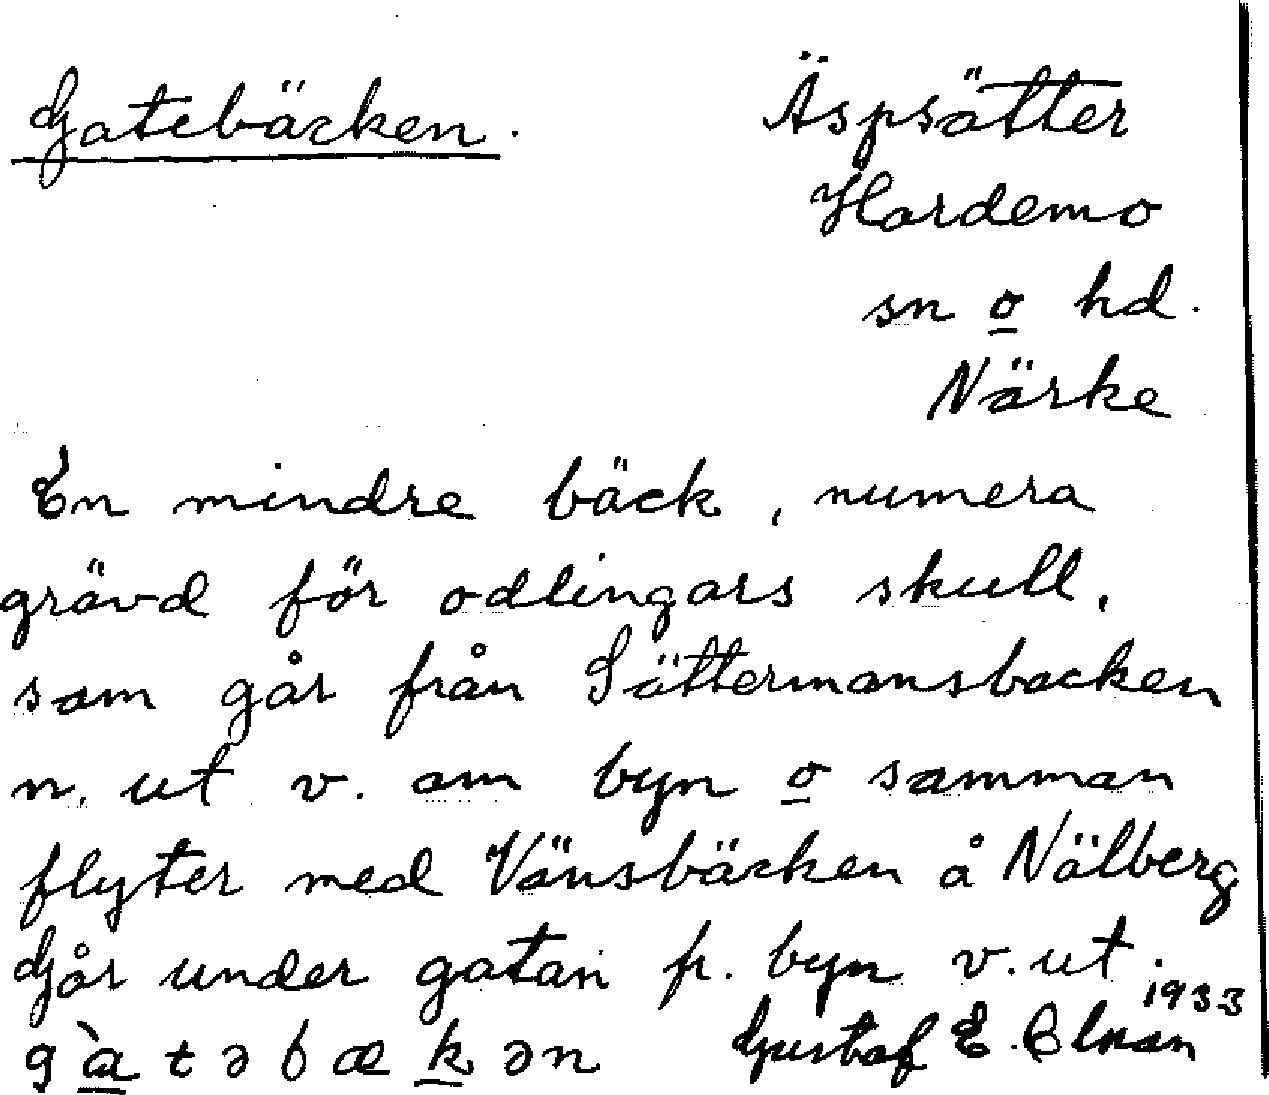 Gatebäcken.
Äspsätter
Hardemo
sn o hd.
Närke
En mindre bäck, numera
grävd för odlingars skull,
som går från Sättermansbacken
n. ut v. om byn o samman
flyter med Vänsbäcken å Nälberg
Går under gatan fr. byn v. ut.
1933
gàtəbækən Gustaf E.